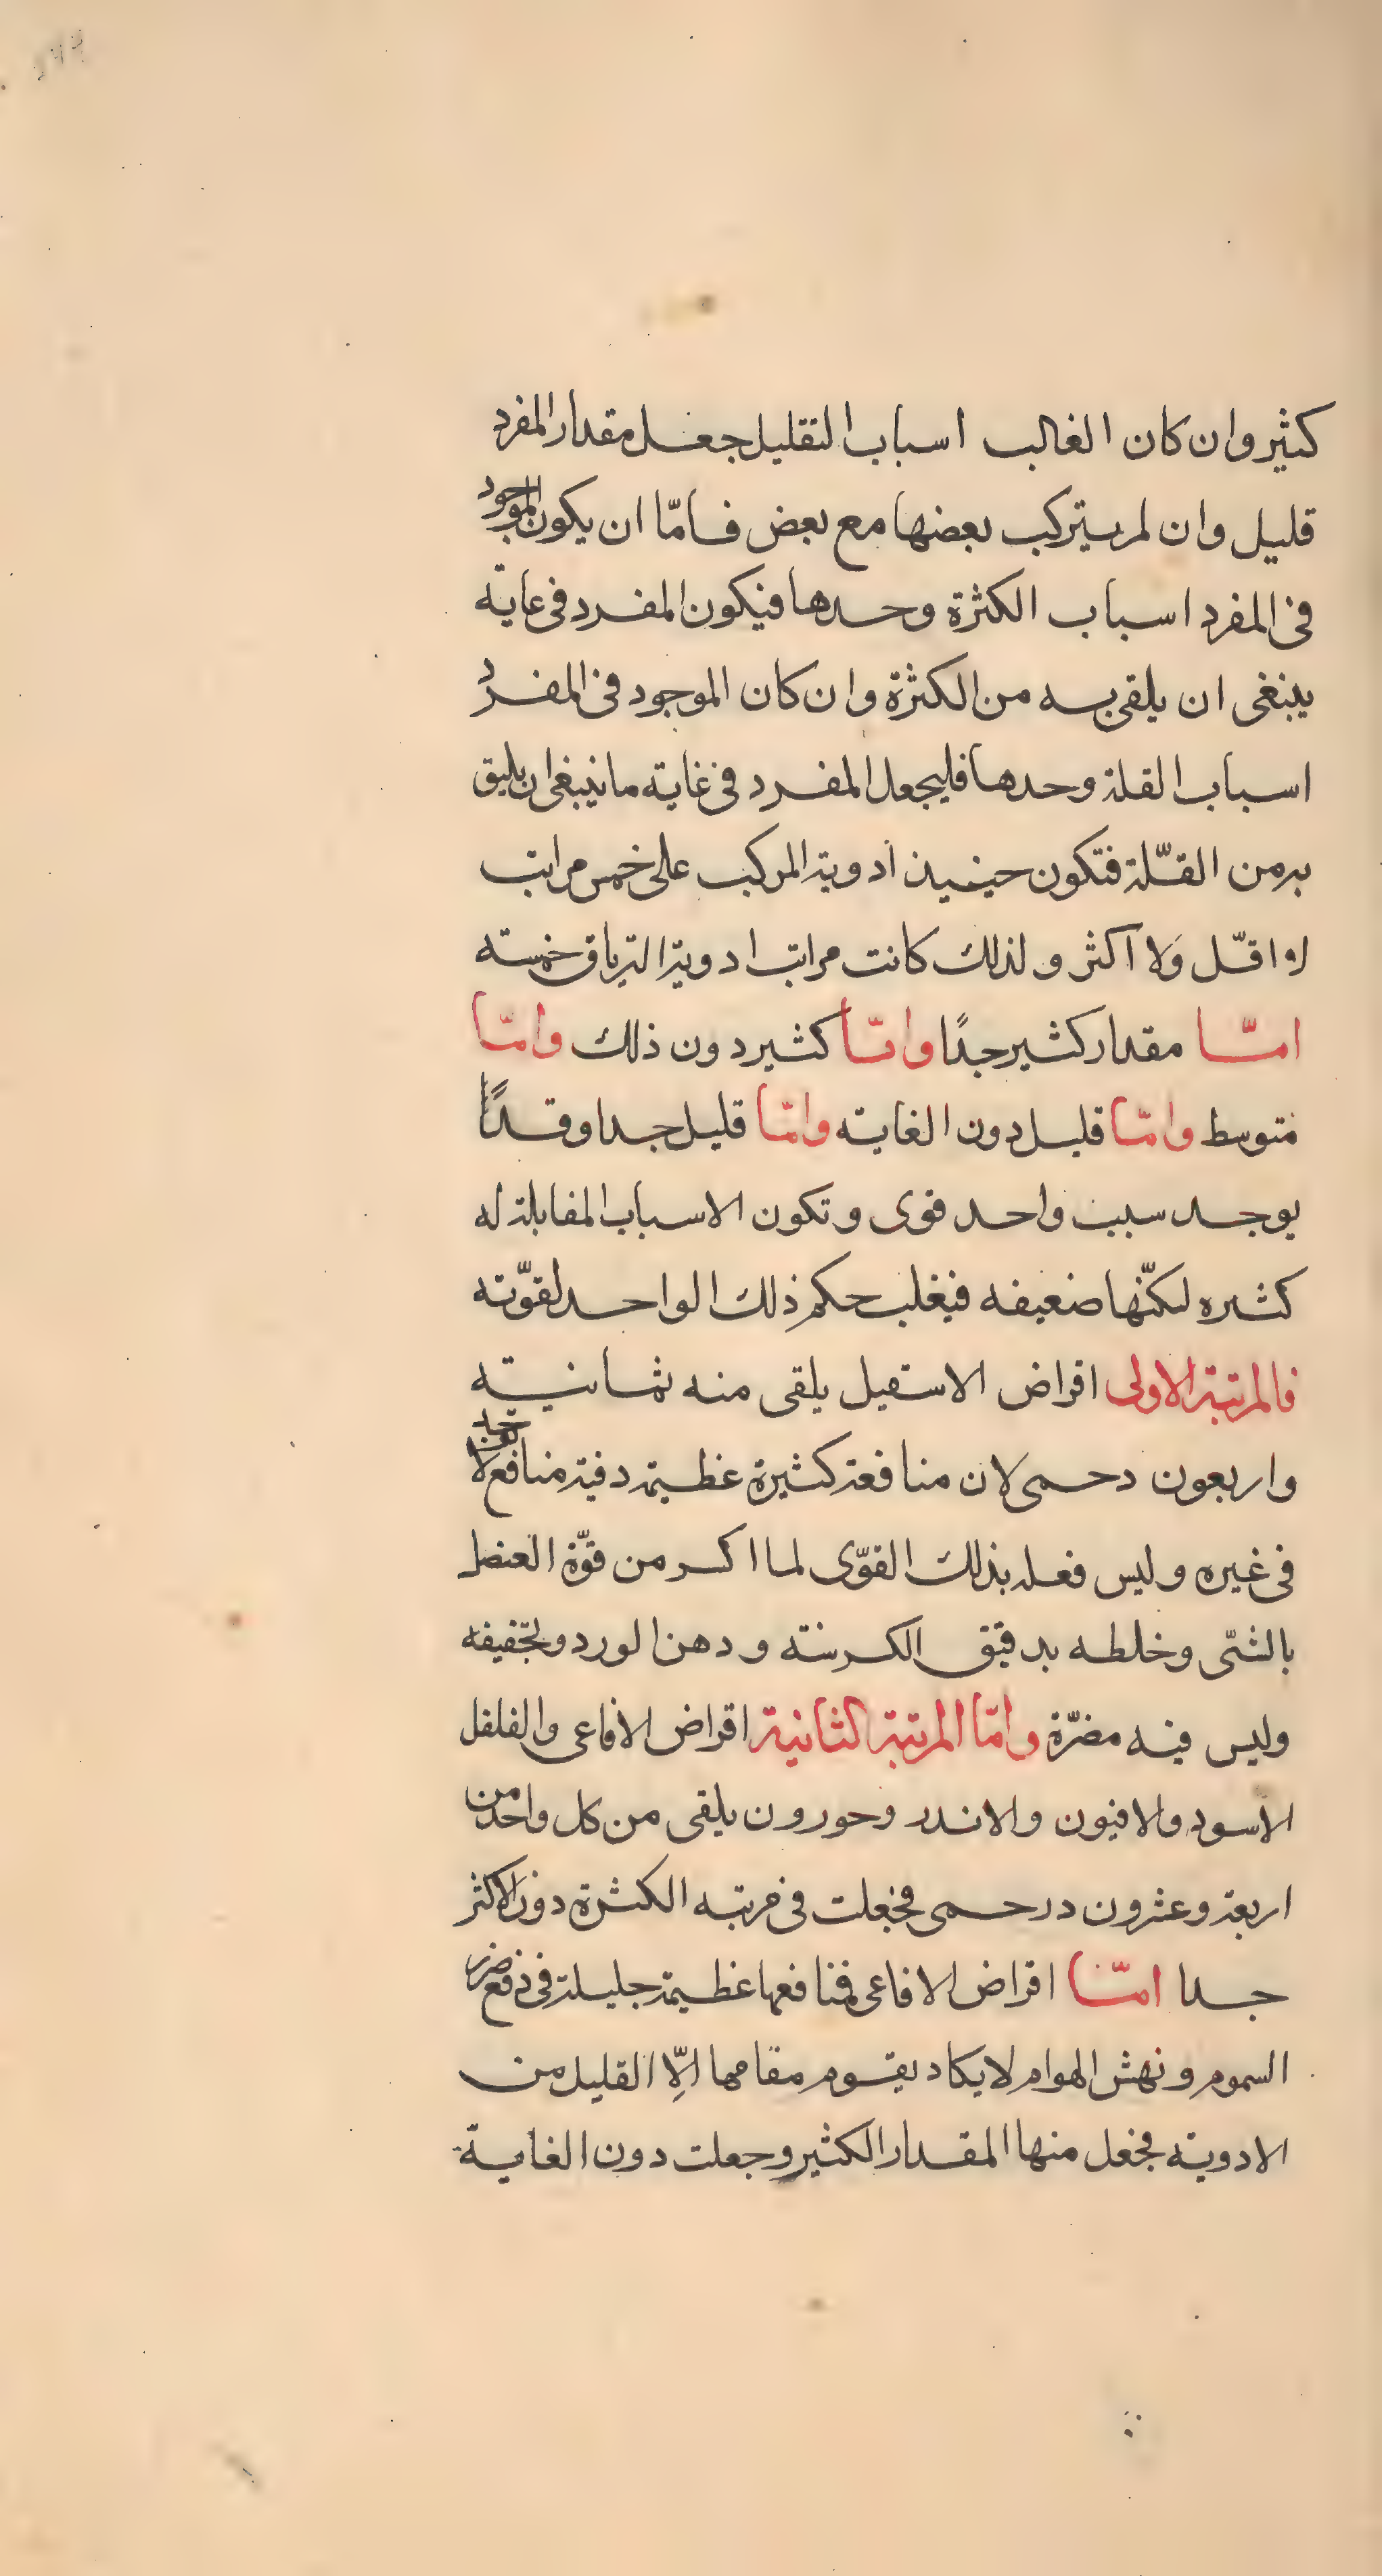 كثير وان كان الغالب اسباب التقليل جعل مقدار المفرد
قليل وان لم يتركب بعضها مع بعض فامّا ان يكون الموجود
فى المفرد اسباب الكثرة وحدها فيكون المفرد فى غاية
ينبغى ان يلقى به من الكثرة وان كان الموجود فى المفرد
اسباب القلة وحدها فليجعل المفرد فى غايته ما ينبغى ان يليق
به من القلّة فتكون حينيذ ادوية المركب على خمس مراتب
لا اقلّ ولا اكثر ولذلك كانت مراتب ادوية الترياق خمسة
امّا مقدار كثير جدًا وامّا كثير دون ذلك وامّا
متوسط وامّا قليل دون الغاية وامّا قليل جدا وقد
يوجد سبب واحد قوى وتكون الاسباب المقابلة له
كثيره لكنّها ضعيفه فيغلب حكم ذلك الواحد لقوّته
فالمرتبة الاولى اقراض الاسقيل يلقى منه ثمانية
واربعون دحمى لان منافعة كثيرة عظيمة دفية منافع لا توجد
فى غيره وليس فعله بذلك القوّى لما اكسر من قوّة العنصل
بالشّى وخلطه بدقيق الكرسنة ودهن الورد وتجفيفه
وليس فيه مضرّة وامّا المرتبة الثانية اقراض الافاعى والفلفل
الاسود والافيون والاندر وحورون يلقى من كل واحد من
اربعة وعشرون درحمى فجعلت فى مرتبه الكثرة دون الاكثر
جدا امّا اقراض الافاعى فمنافعها عظيمة جليلة فى دفع ضرر
السموم ونهش الهوام لا يكاد يقوم مقامها الّا القليل من
الادوية فجعل منها المقدار الكثير وجعلت دون الغاية